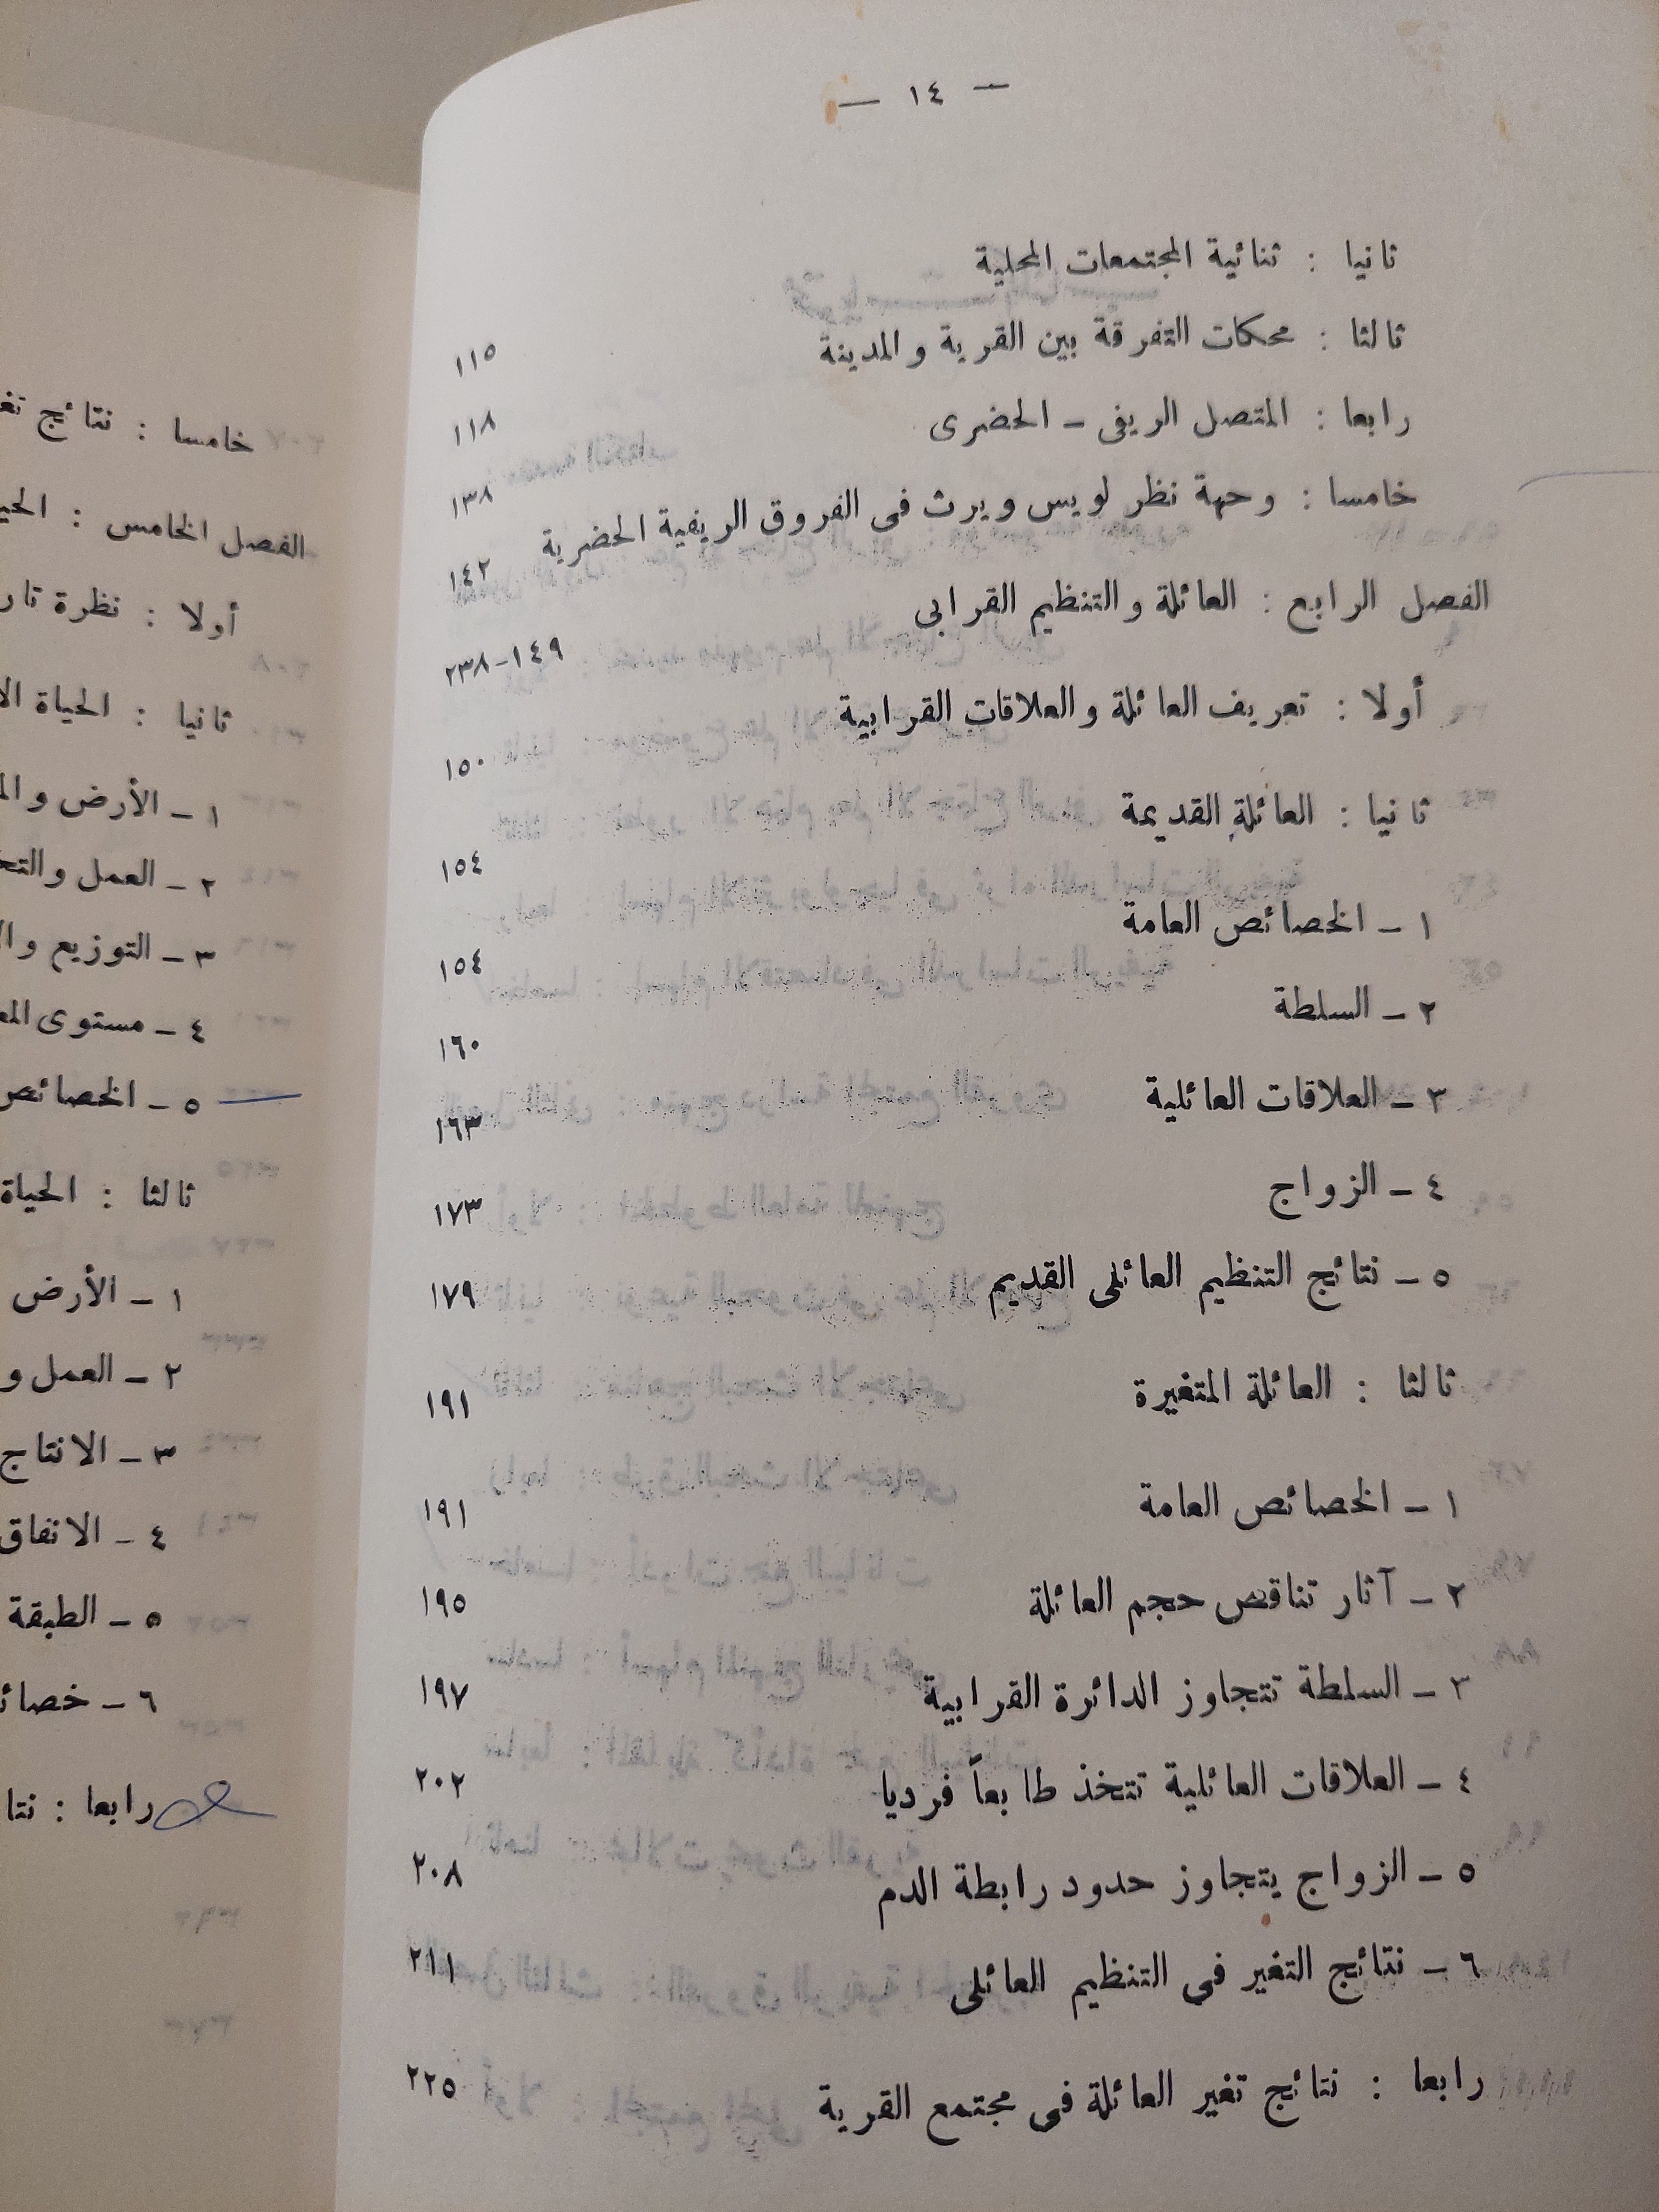 — ١٤ —
ثانيا : ثنائية المجتمعات المحلية ١١٥
ثالثا : محكات التفرقة بين القرية والمدينة ١١٨
رابعا : المتصل الريفى - الحضرى ١٣٨
خامسا : وجهة نظر لويس ويرث فى الفروق الريفية الحضرية ١٤٢
الفصل الرابع : العائلة والتنظيم القرابى ١٤٩-٢٣٨
أولا : تعريف العائلة والعلاقات القرابية ١٥٠
ثانيا : العائلة القديمة ١٥٤
١ - الخصائص العامة ١٥٤
٢ - السلطة ١٦٠
٣ - العلاقات العائلية ١٦٣
٤ - الزواج ١٧٣
٥ - نتائج التنظيم العائلى القديم ١٧٩
ثالثا : العائلة المتغيرة ١٩١
١ - الخصائص العامة ١٩١
٢ - آثار تناقص حجم العائلة ١٩٥
٣ - السلطة تتجاوز الدائرة القرابية ١٩٧
٤ - العلاقات العائلية تتخذ طابعاً فرديا ٢٠٢
٥ - الزواج يتجاوز حدود رابطة الدم ٢٠٨
٦ - نتائج التغير فى التنظيم العائلى ٢١١
رابعا : نتائج تغير العائلة فى مجتمع القرية ٢٢٥
خامسا : نتائج
الفصل الخامس :
أولا : نظرة
ثانيا : الحياة
١ - الأرض
٢ - العمل
٣ - التوزيع
٤ - مستوى
٥ - الخصائص
ثالثا : الحياة
١ - الأرض
٢ - العمل و
٣ - الانتاج
٤ - الانفاق
٥ - الطبقة
٦ -
رابعا :